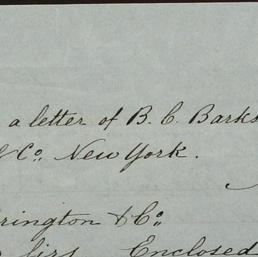 a letter of B. C. Barks
& Co. New York.
rington & Co.
Sirs Enclosed